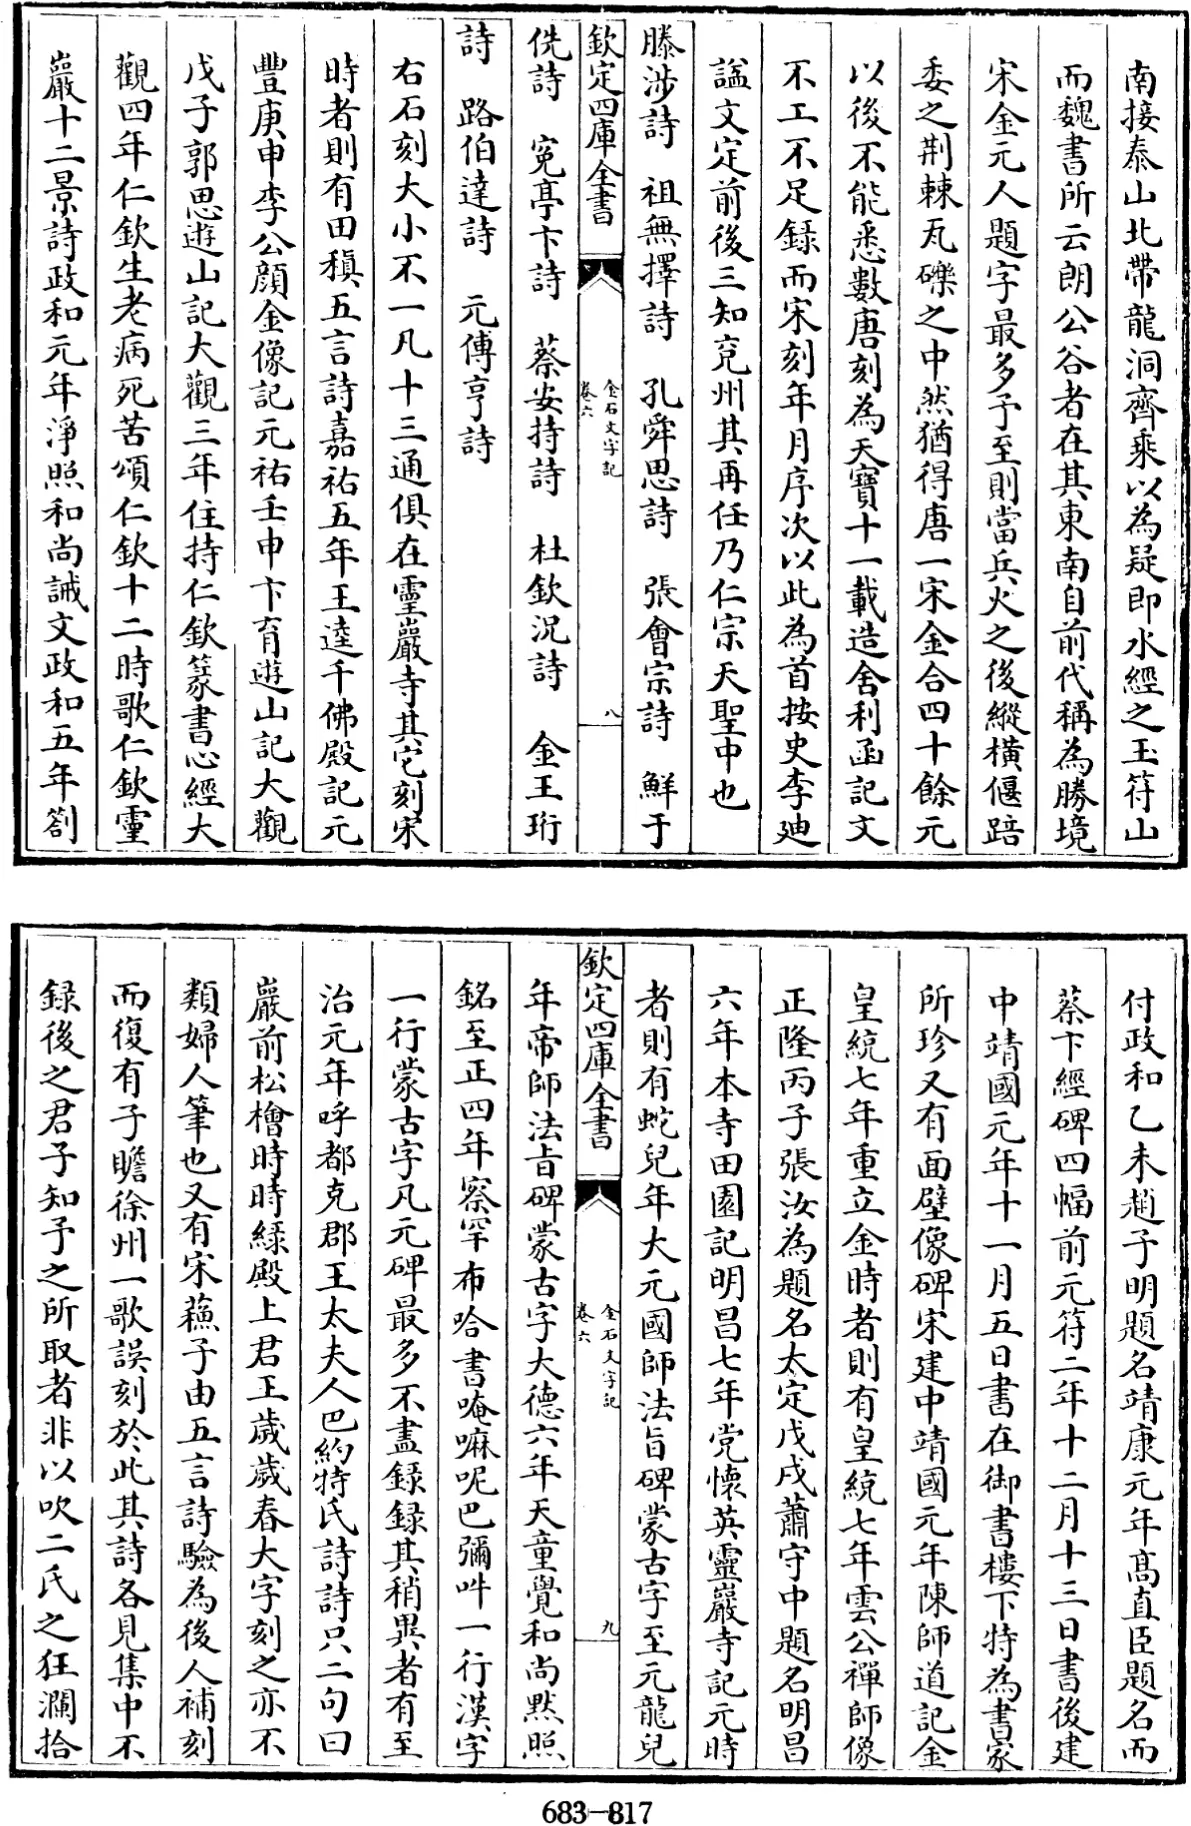 南接泰山北帶龍洞齊乘以為疑即水經之玉符山
而魏書所云朗公谷者在其東南自前代稱為勝境
宋金元人題字最多予至則當兵火之後縱橫偃踣
委之荆棘瓦礫之中然猶得唐一宋金合四十餘元
以後不能悉數唐刻為天寶十一載造舍利函記文
不工不足錄而宋刻年月序次以此為首按史李廸
諡文定前後三知兖州其再任乃仁宗天聖中也
滕涉詩 祖無擇詩 孔舜思詩 張會宗詩 鮮于
欽定四庫全書 金石文字記 卷六 八
侁詩 寃亭卞詩 蔡安持詩 杜欽況詩 金王珩
詩 路伯達詩 元傅亨詩
右石刻大小不一凡十三通俱在靈巖寺其它刻宋
時者則有田稹五言詩嘉祐五年王逵千佛殿記元
豐庚申李公顔金像記元祐壬申卞育遊山記大觀
戊子郭思遊山記大觀三年住持仁欽篆書心經大
觀四年仁欽生老病死苦頌仁欽十二時歌仁欽靈
巖十二景詩政和元年淨照和尚誡文政和五年劄
付政和乙未趙子明題名靖康元年髙直臣題名而
蔡卞經碑四幅前元符二年十二月十三日書後建
中靖國元年十一月五日書在御書樓下特為書家
所珍又有面壁像碑宋建中靖國元年陳師道記金
皇統七年重立金時者則有皇統七年雲公禪師像
正隆丙子張汝為題名大定戊戌蕭守中題名明昌
六年本寺田園記明昌七年党懷英靈巖寺記元時
者則有蛇兒年大元國師法旨碑蒙古字至元龍兒
欽定四庫全書 金石文字記 卷六 九
年帝師法旨碑蒙古字大德六年天童覺和尚默照
銘至正四年察罕布哈書唵嘛呢巴彌吽一行漢字
一行蒙古字凡元碑最多不盡錄錄其稍異者有至
治元年呼都克郡王太夫人巴約特氏詩詩只二句曰
巖前松檜時時綠殿上君王歲歲春大字刻之亦不
類婦人筆也又有宋蘓子由五言詩驗為後人補刻
而復有子瞻徐州一歌誤刻於此其詩各見集中不
錄後之君子知予之所取者非以吹二氏之狂瀾拾
683-817